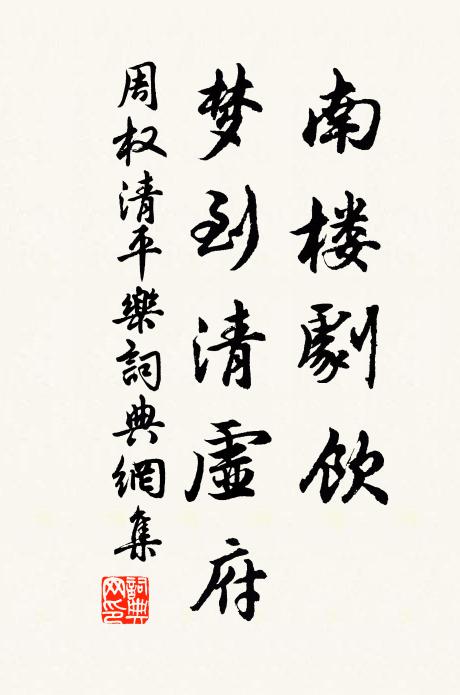 南楼劇飲
梦到清虚府
周权清平樂詞典網集
詞典网印